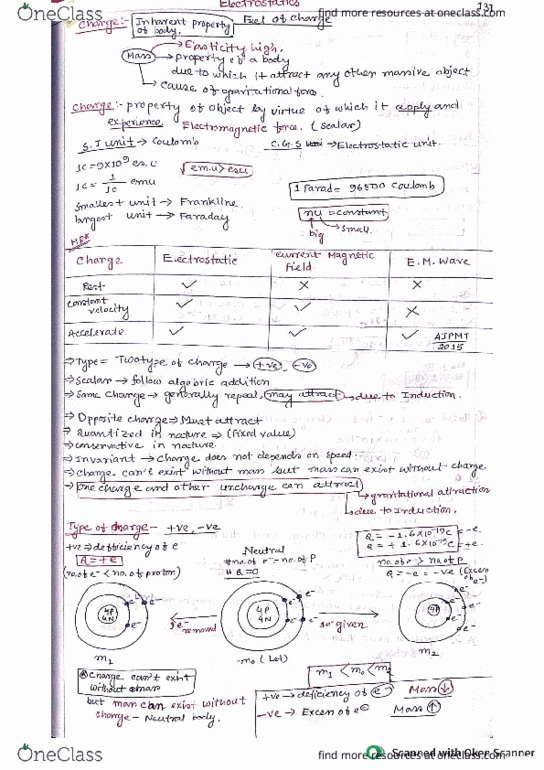 Electrostatics
131
OneClass
find more resources at oneclass.com
Charge:- Inherent property of body. Feel of charge
Elasticity high.
Mass → property of a body
due to which it attract any other massive object
→ cause of gravitational force.
Charge:- property of object by virtue of which it apply and
experience Electromagnetic force. (scalar)
S.I unit → Coulomb
C.G.S unit → Electrostatic unit.
1C = 9×10⁹ es.u
emu > esu
1C = 1/10 emu
1 Farad = 96500 Coulomb
Smallest unit → Frankline.
largest unit → Faraday
nu = constant
big
small.
Charge | Electrostatic | Current Magnetic Field | E.M. Wave
Rest | ✓ | × | ×
Constant velocity | ✓ | ✓ | ×
Accelerate | ✓ | ✓ | ✓ AIPMT 2015
⇒ Type = Two type of charge → +ve, -ve
⇒ Scalar → follow algebric addition
⇒ Same Charge → generally repeal, may attract → due to Induction.
⇒ Opposite charge ⇒ Must attract
⇒ Quantized in nature ⇒ (Fixed value)
⇒ conservative in nature.
⇒ Invariant → charge does not depends on speed.
⇒ charge can't exist without mass but mass can exist without charge.
⇒ one charge and other uncharge can attract
→ gravitational attraction
→ due to Induction.
Type of charge - +ve, -ve
Q = -1.6×10⁻¹⁹C = -e
Q = +1.6×10⁻¹⁹C = +e
+ve ⇒ defficiency of e⁻
Q = +e
(no. of e⁻ < no. of proton)
Neutral
# no. of e⁻ = no. of P
# Q = 0
no. of e⁻ > no. of P
Q = -e = -ve (Excess of e⁻)
4P
4N
e⁻
e⁻
m₁
e⁻
removed
4P
4N
e⁻
e⁻
m₀ (Let)
e⁻ given
4P
e⁻
e⁻
m₂
m₁ < m₀ < m₂
Charge can't exist
without mass
but mass can exist without
charge - Neutral body.
+ve → deficiency of e⁻ Mass ↓
-ve → Excess of e⁻ Mass ↑
Scanned with Oken Scanner
OneClass
find more resources at oneclass.com